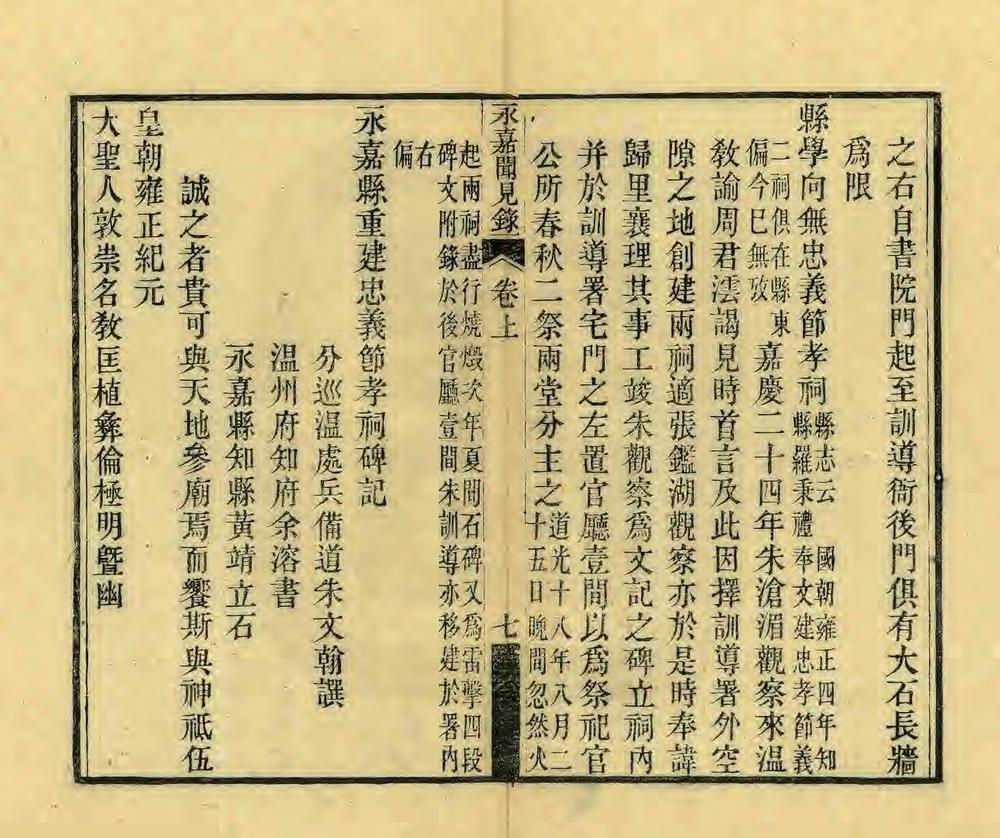 之右自書院門起至訓導衙後門俱有大石長牆
爲限
縣學向無忠義節孝祠縣志云 國朝雍正四年知縣羅秉禮奉文建忠孝節義
二祠俱在縣東偏今已無攷 嘉慶二十四年朱滄湄觀察來溫
敎諭周君澐謁見時首言及此因擇訓導署外空
隙之地創建兩祠適張鑑湖觀察亦於是時奉諱
歸里襄理其事工竣朱觀察爲文記之碑立祠內
并於訓導署宅門之左置官廳壹間以爲祭祀官
公所春秋二祭兩堂分主之道光十八年八月二十五日晚間忽然火
永嘉聞見錄 卷上 七
起兩祠盡行燒燬次年夏間石碑又爲雷擊四段
碑文附錄於後官廳壹間朱訓導亦移建於署內
右
偏
永嘉縣重建忠義節孝祠碑記
分巡溫處兵備道朱文翰譔
溫州府知府余溶書
永嘉縣知縣黃靖立石
誠之者貴可與天地參廟焉而饗斯與神祗伍
皇朝雍正紀元
大聖人敦崇名敎匡植彝倫極明曁幽